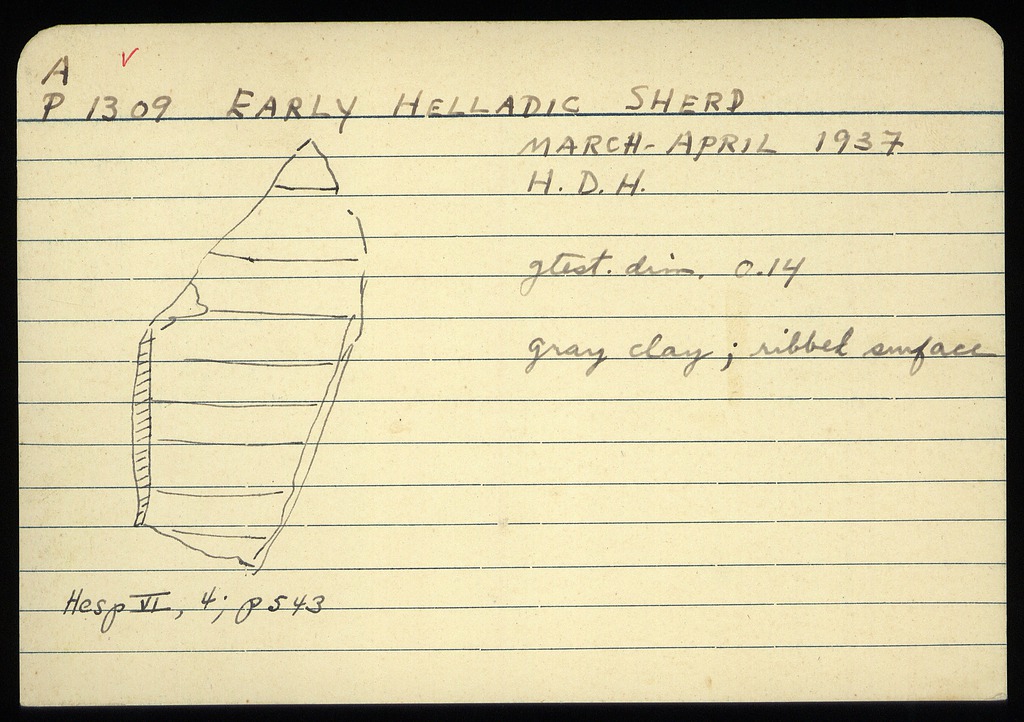 A
P 1309 EARLY HELLADIC SHERD
MARCH-APRIL 1937
H. D. H.
gtest. dim. 0.14
gray clay; ribbed surface
Hesp VI, 4; p 543